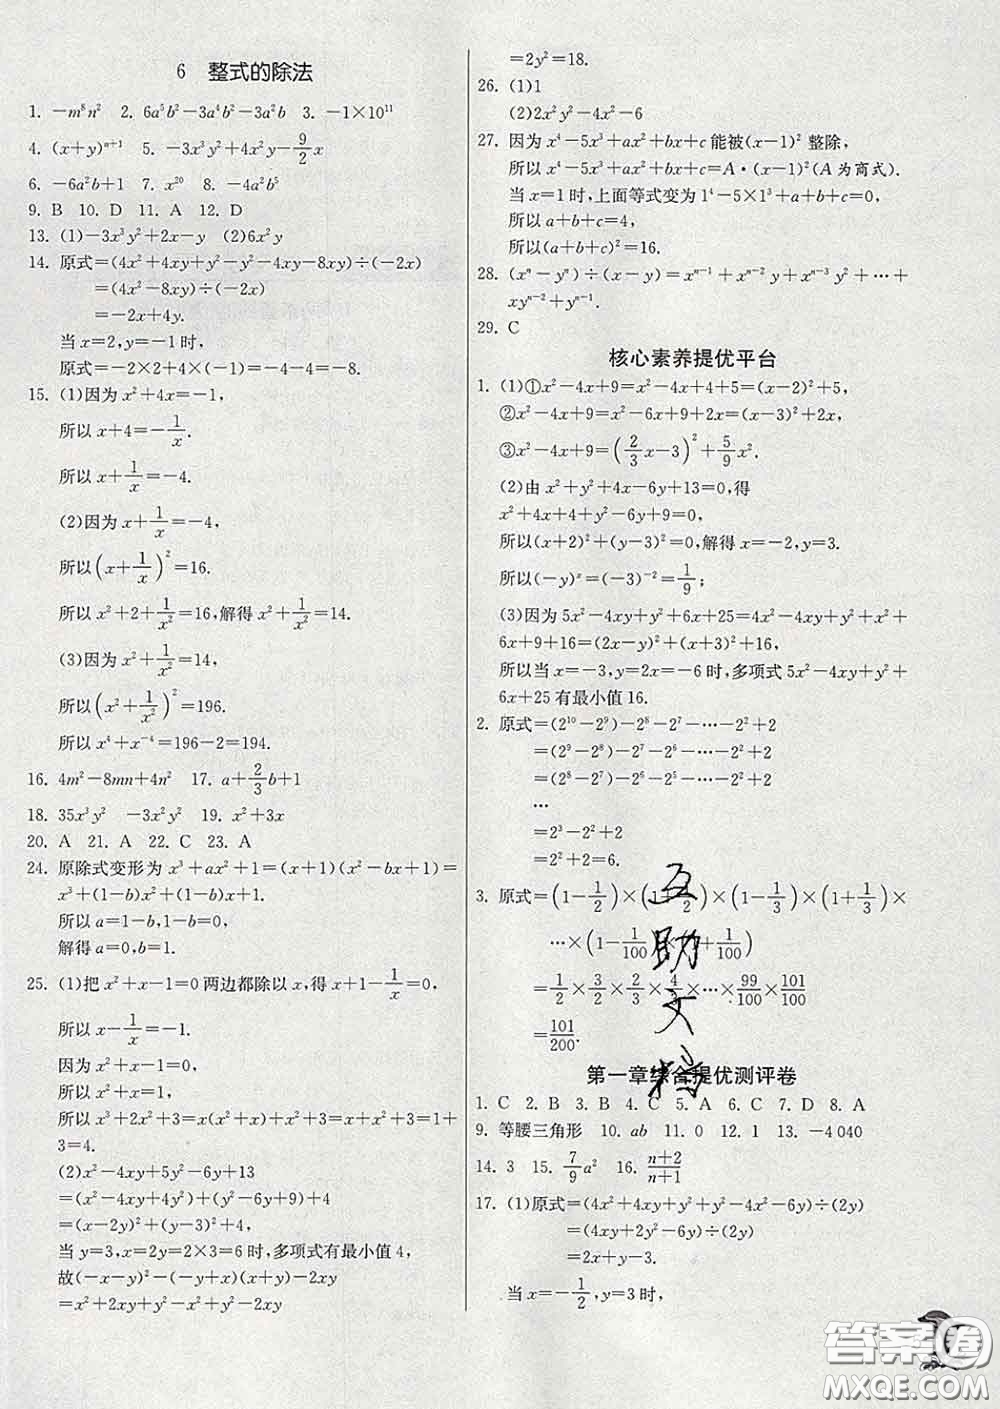 6 整式的除法
1. −m⁸n² 2. 6a⁵b²−3a⁴b²−3a²b 3. −1×10¹¹
4. (x+y)ⁿ⁺¹ 5. −3x³y²+4x²y−9/2x
6. −6a²b+1 7. x²⁰ 8. −4a²b⁵
9. B 10. D 11. A 12. D
13. (1)−3x³y²+2x−y (2)6x²y
14. 原式=(4x²+4xy+y²−y²−4xy−8xy)÷(−2x)
=(4x²−8xy)÷(−2x)
=−2x+4y.
当x=2,y=−1时,
原式=−2×2+4×(−1)=−4−4=−8.
15. (1)因为x²+4x=−1,
所以x+4=−1/x.
所以x+1/x=−4.
(2)因为x+1/x=−4,
所以(x+1/x)²=16.
所以x²+2+1/x²=16,解得x²+1/x²=14.
(3)因为x²+1/x²=14,
所以(x²+1/x²)²=196.
所以x⁴+x⁻⁴=196−2=194.
16. 4m²−8mn+4n² 17. a+2/3b+1
18. 35x³y² −3x²y² 19. x²+3x
20. A 21. A 22. C 23. A
24. 原除式变形为x³+ax²+1=(x+1)(x²−bx+1)=
x³+(1−b)x²+(1−b)x+1.
所以a=1−b,1−b=0,
解得a=0,b=1.
25. (1)把x²+x−1=0两边都除以x,得x+1−1/x=0,
所以x−1/x=−1.
因为x²+x−1=0,
所以x²+x=1,
所以x³+2x²+3=x(x²+x)+x²+3=x+x²+3=1+
3=4.
(2)x²−4xy+5y²−6y+13
=(x²−4xy+4y²)+(y²−6y+9)+4
=(x−2y)²+(y−3)²+4,
当y=3,x=2y=2×3=6时,多项式有最小值4,
故(−x−y)²−(−y+x)(x+y)−2xy
=x²+2xy+y²−x²+y²−2xy
=2y²=18.
26. (1)1
(2)2x²y²−4x²−6
27. 因为x⁴−5x³+ax²+bx+c能被(x−1)²整除,
所以x⁴−5x³+ax²+bx+c=A·(x−1)²(A为商式)
当x=1时,上面等式变为1⁴−5×1³+a+b+c=0,
所以a+b+c=4,
所以(a+b+c)²=16.
28. (xⁿ−yⁿ)÷(x−y)=xⁿ⁻¹+xⁿ⁻²y+xⁿ⁻³y²+…+
xyⁿ⁻²+yⁿ⁻¹.
29. C
核心素养提优平台
1. (1)①x²−4x+9=x²−4x+4+5=(x−2)²+5,
②x²−4x+9=x²−6x+9+2x=(x−3)²+2x,
③x²−4x+9=(2/3x−3)²+5/9x².
(2)由x²+y²+4x−6y+13=0,得
x²+4x+4+y²−6y+9=0,
所以(x+2)²+(y−3)²=0,解得x=−2,y=3.
所以(−y)ˣ=(−3)⁻²=1/9;
(3)因为5x²−4xy+y²+6x+25=4x²−4xy+y²+x²+
6x+9+16=(2x−y)²+(x+3)²+16,
所以当x=−3,y=2x=−6时,多项式5x²−4xy+y²+
6x+25有最小值16.
2. 原式=(2¹⁰−2⁹)−2⁸−2⁷−…−2²+2
=(2⁹−2⁸)−2⁷−2⁶−…−2²+2
=(2⁸−2⁷)−2⁶−2⁵−…−2²+2
…
=2³−2²+2
=2²+2=6.
3. 原式=(1−1/2)×(1+1/2)×(1−1/3)×(1+1/3)×
…×(1−1/100)×(1+1/100)
=1/2×3/2×2/3×4/3×…×99/100×101/100
=101/200.
互助文档
第一章综合提优测评卷
1. C 2. B 3. B 4. C 5. A 6. C 7. D 8. A
9. 等腰三角形 10. ab 11. 0 12. 1 13. −4 040
14. 3 15. 7/9a² 16. n+2/n+1
17. (1)原式=(4x²+4xy+y²+y²−4x²−6y)÷(2y)
=(4xy+2y²−6y)÷(2y)
=2x+y−3.
当x=−1/2,y=3时,
答案圈
MXQE.COM